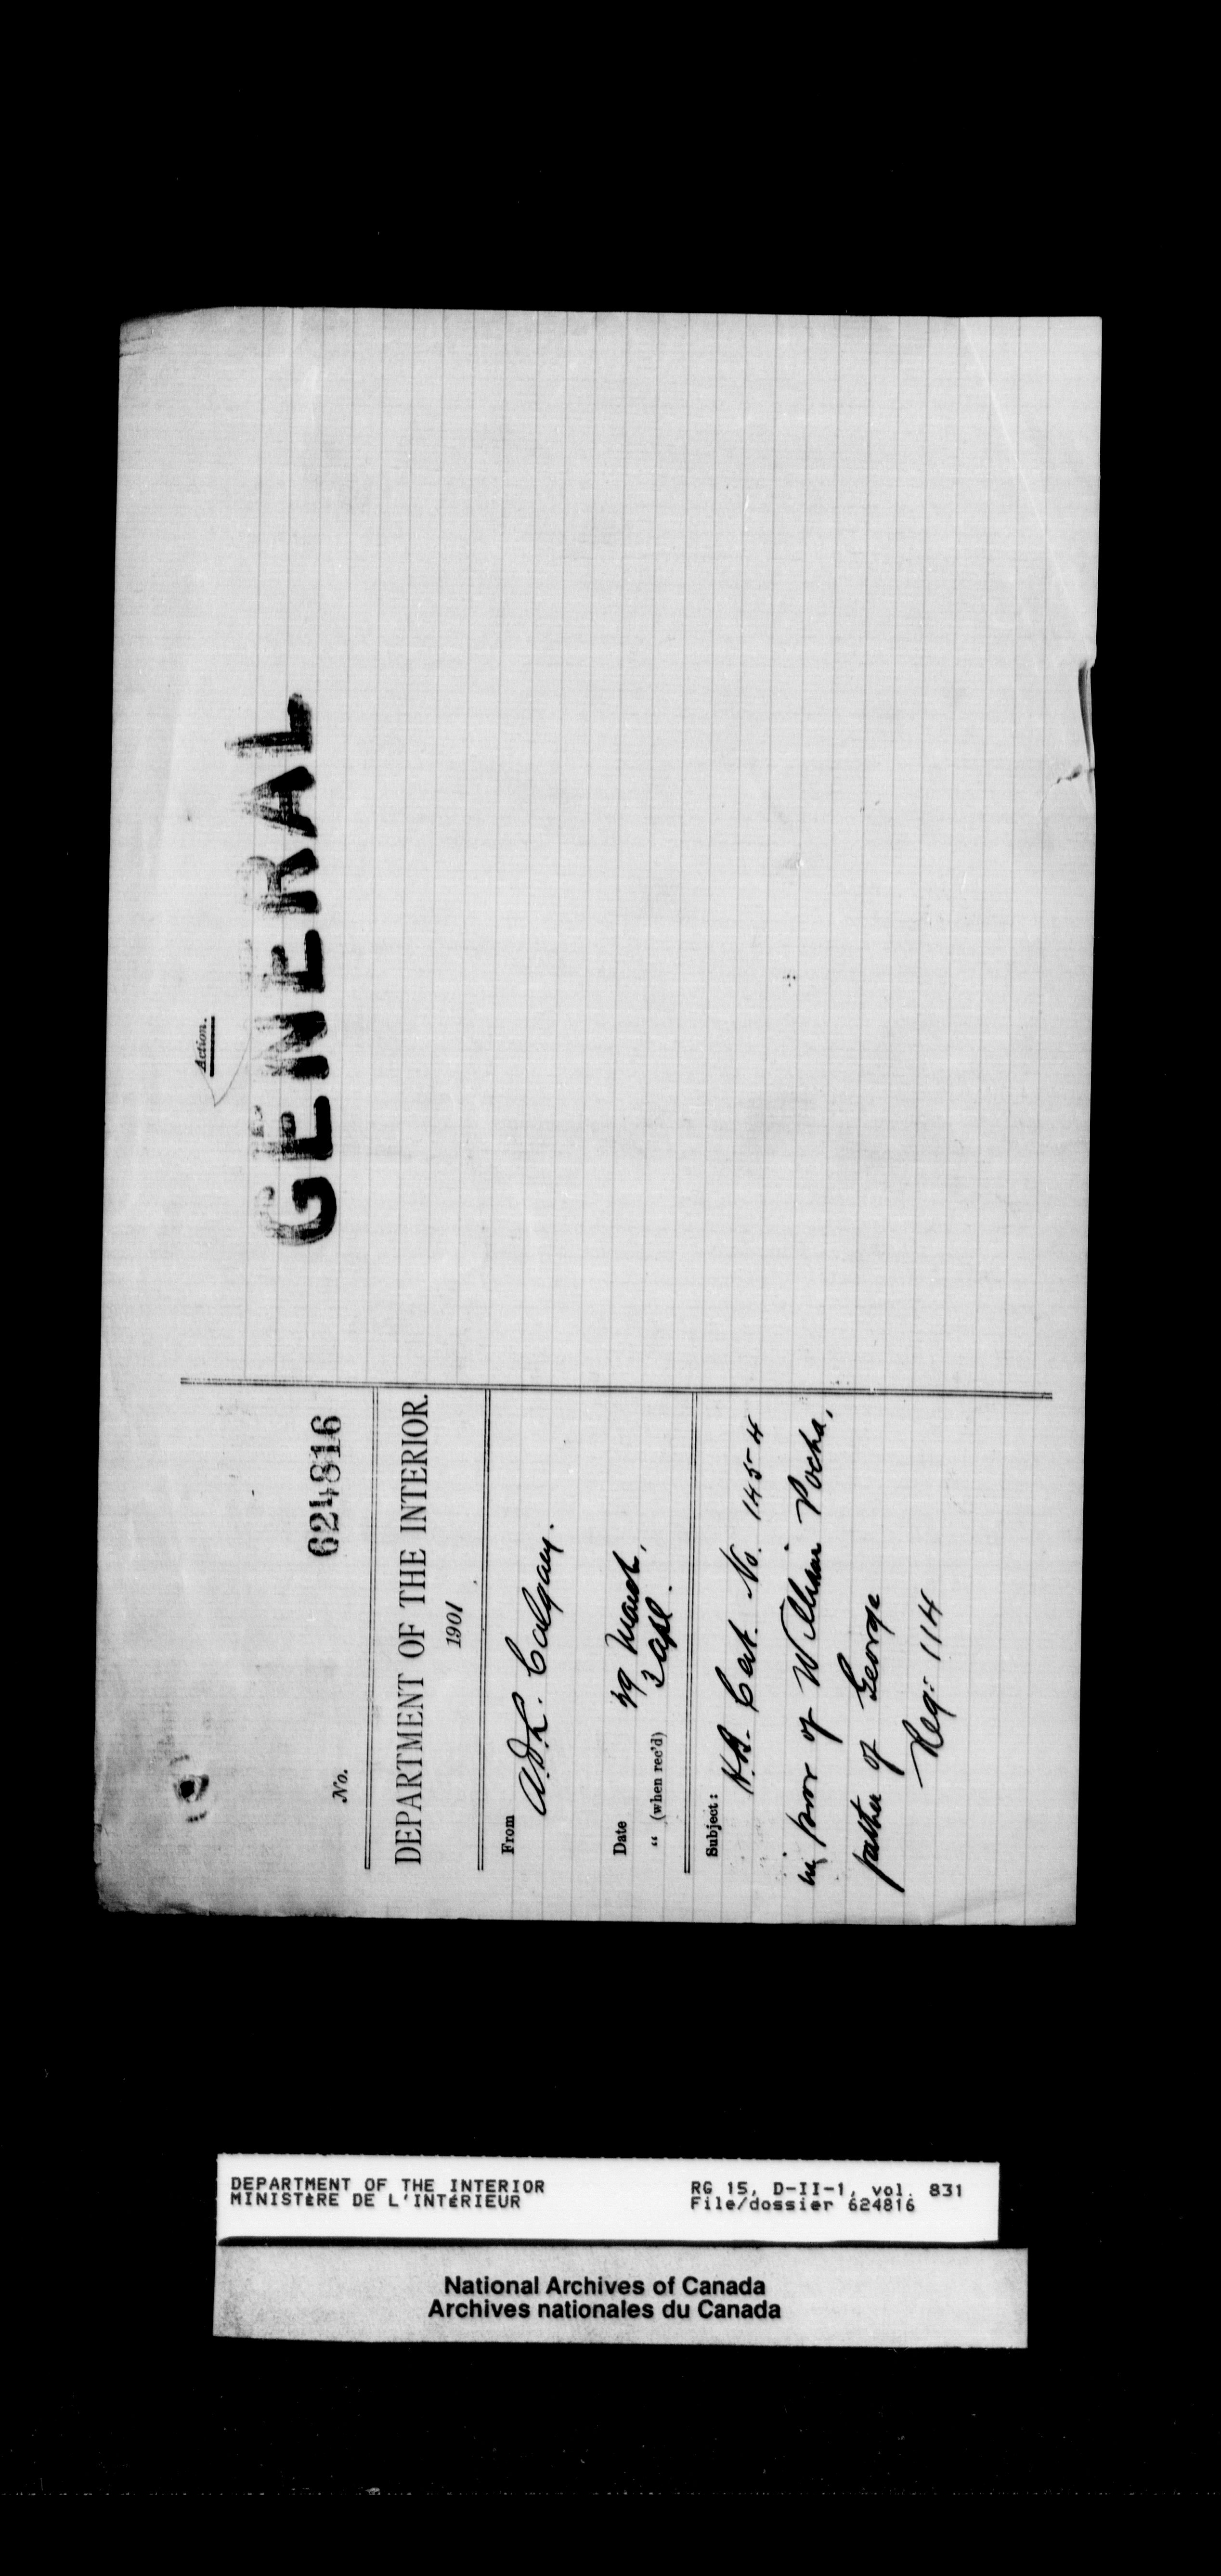 Action.
GENERAL
No. 624816
DEPARTMENT OF THE INTERIOR.
1901
From A.D.L. Calgary.
Date 29 March,
" (when rec'd) 3 Apl.
Subject:
H.B. Cert. No. 1454
in favor of William Pocha,
father of George
Reg: 114
DEPARTMENT OF THE INTERIOR
MINISTÈRE DE L'INTÉRIEUR
RG 15, D-II-1, vol. 831
File/dossier 624816
National Archives of Canada
Archives nationales du Canada